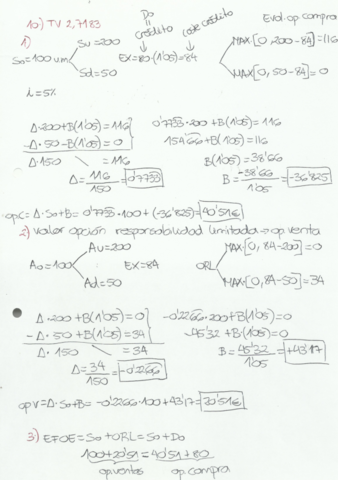 10) TV 2,7183
Do
crédito
coste crédito
Evol. op. compra
1)
So=100 um
Su=200
Sd=50
EX=80·(1'05)=84
MAX[0, 200-84]=116
MAX[0, 50-84]=0
i=5%
Δ·200+B(1'05)=116
-Δ·50-B(1'05)=0
Δ·150 = 116
Δ=116/150=0'7733
0'7733·200+B(1'05)=116
154'66+B(1'05)=116
B(1'05)=-38'66
B=-38'66/1'05=-36'825
op.C=Δ·So+B=0'7733·100+(-36'825)=40'51€
2) Valor opción responsabilidad limitada→op venta
Ao=100
Au=200
Ad=50
EX=84
ORL
MAX[0, 84-200]=0
MAX[0, 84-50]=34
Δ·200+B(1'05)=0
-Δ·50+B(1'05)=34
Δ·150 = 34
Δ=34/150=-0'2266
-0'2266·200+B(1'05)=0
-45'32+B(1'05)=0
B=45'32/1'05=+43'17
op.V=Δ·So+B=-0'2266·100+43'17=20'51€
3) EFOE=So+ORL=So+Do
100+20'51=40'51+80
op.ventas op.compra